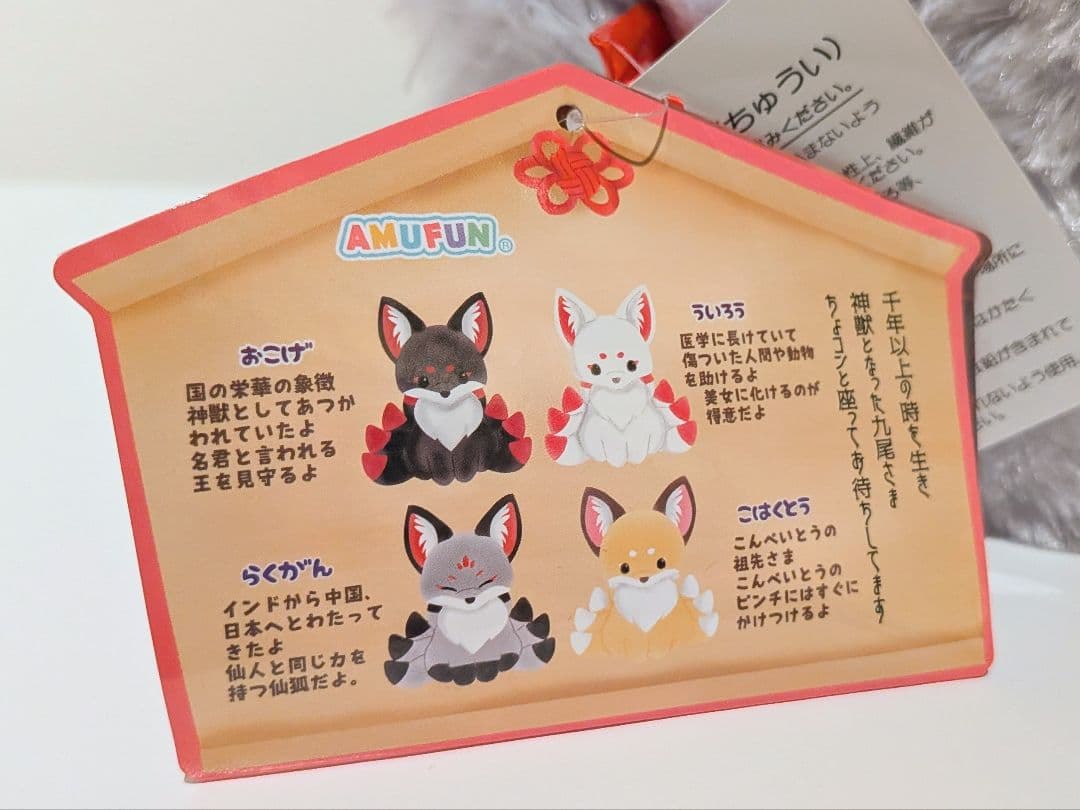 AMUFUN®
おこげ
国の栄華の象徴
神獣としてあつか
われていたよ
名君と言われる
王を見守るよ
ういろう
医学に長けていて
傷ついた人間や動物
を助けるよ
美女に化けるのが
得意だよ
らくがん
インドから中国、
日本へとわたって
きたよ
仙人と同じ力を
持つ仙狐だよ。
こはくとう
こんぺいとうの
祖先さま
こんぺいとうの
ピンチにはすぐに
かけつけるよ
千年以上の時を生き
神獣となった九尾さま
ちょコンと座ってお待ちしてます
ちゅうい)
みください。
まないよう
性上、繊維が
ください。
る等、
場所に
はかたく
が含まれて
れないよう使用
い。